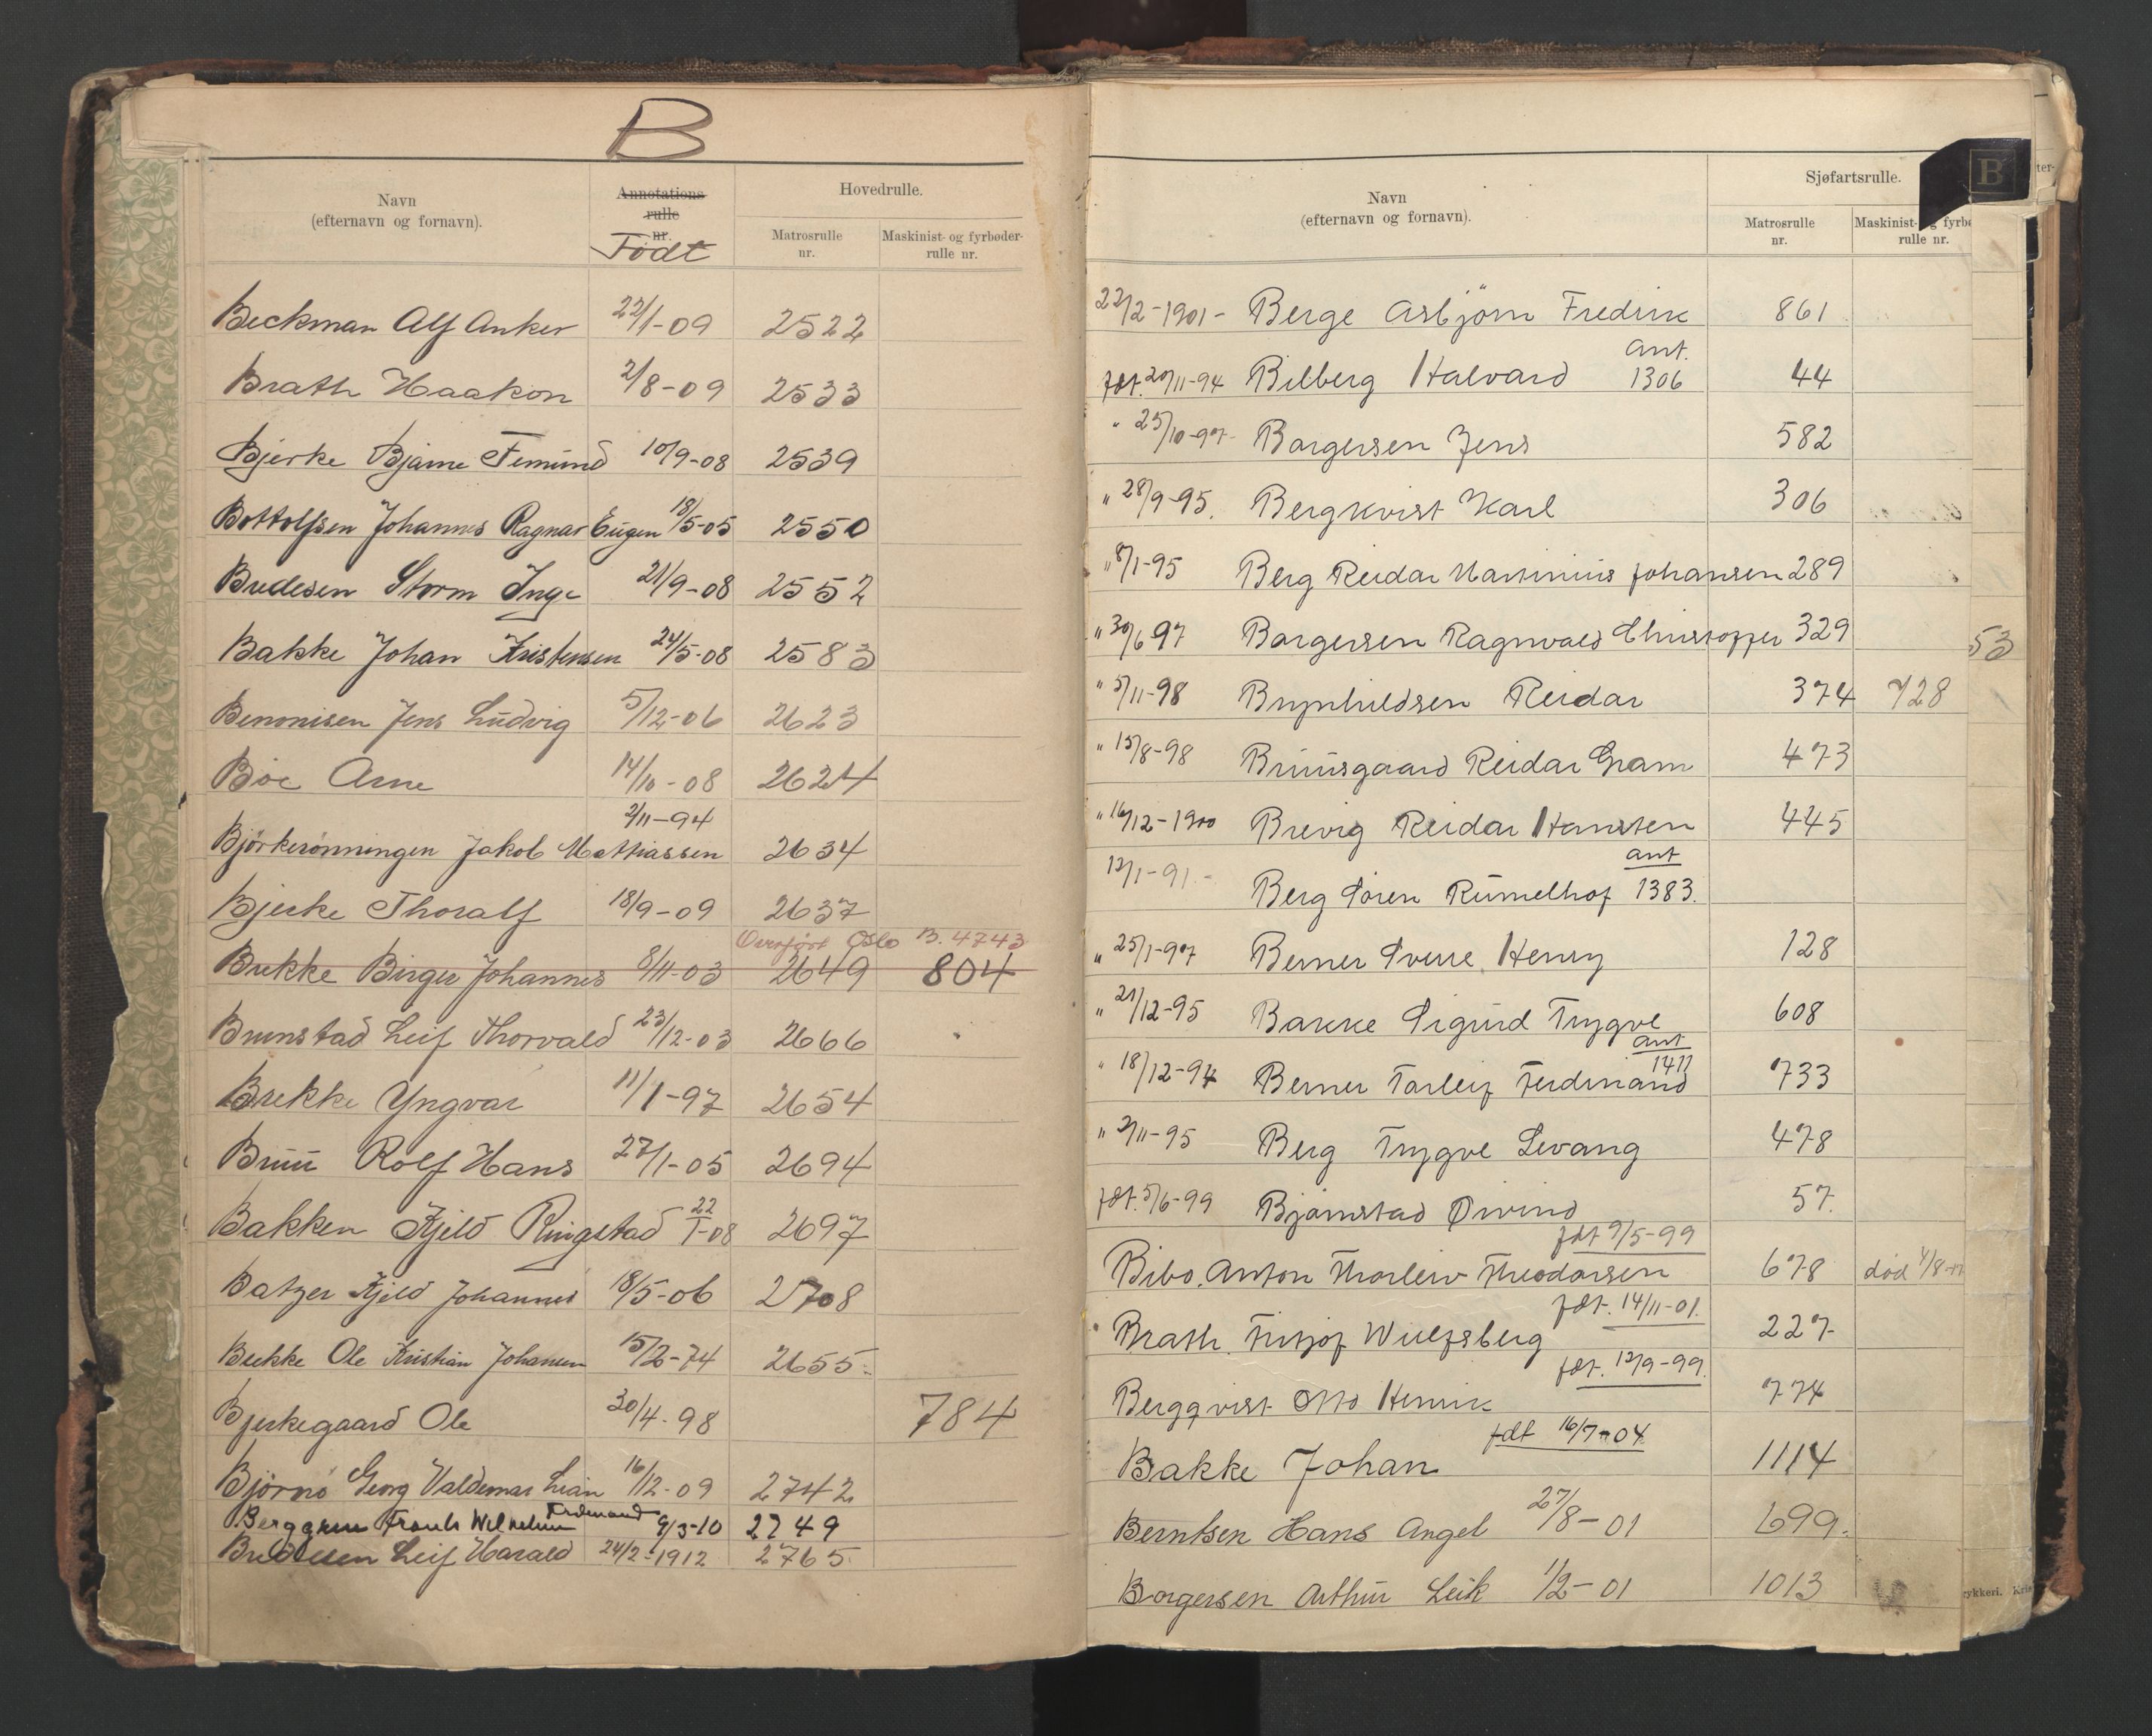 B
Navn
(efternavn og fornavn).
Annotations
rulle
nr.
Født
Hovedrulle.
Matrosrulle
nr.
Maskinist- og fyrbøder-
rulle nr.
Beckman Alf Anker 22/1-09 2522
Brath Haakon 2/8-09 2533
Bjerke Bjarne Femund 10/9-08 2539
Bottolfsen Johannes Ragnar Eugen 18/5-05 2550
Bredesen Storm Inge 21/9-08 2552
Bakke Johan Kristensen 24/5-08 2583
Benonisen Jens Ludvig 5/12-06 2623
Böe Arne 14/10-08 2624
2/11-94
Björkerönningen Jakob Mathiassen 2634
Bjerke Thoralf 18/9-09 2637
Overført Oslo B. 4743
Brekke Birger Johannes 8/11-03 2649 804
Brunstad Leif Thorvald 23/12-03 2666
Brekke Yngvar 11/1-97 2654
Bruu Rolf Hans 27/1-05 2694
Bakken Kjeld Ringstad 22/1-08 2697
Batzer Kjeld Johannes 18/5-06 2708
Bekke Ole Kristian Johansen 15/2-74 2655
Bjerkegaard Ole 30/4-98 784
Björnö Georg Valdemar Lian 16/12-09 2742
Berggren Frank Wilhelm Ferdinand 9/3-10 2749
Bredesen Leif Harald 24/2-1912 2765
Navn
(efternavn og fornavn).
Sjøfartsrulle.
B
Matrosrulle
nr.
Maskinist- og fyrbø
rulle nr.
ter-
22/2-1901- Berge Asbjörn Fredrik 861
ant.
fdt. 20/11-94 Bilberg Halvard 1306 44
" 25/10-97- Borgersen Jens 582
" 28/9-95. Bergkvist Karl 306
" 8/1-95 Berg Reidar Marinius Johansen 289
" 30/6 97 Borgersen Ragnvald Christoffer 329
53
" 5/11-98 Brynhildsen Reidar 374 728
" 15/8-98 Bruusgaard Reidar Gram 473
" 16/12-1900 Brevig Reidar Hansten 445
ant
12/1-91- Berg Sören Rumelhof 1383.
" 25/1-97 Berner Sverre Henry 128
" 21/12-95 Bakke Sigurd Trygve 608
ant
1411
" 18/12-94 Berner Torleif Ferdinand 733
" 2/11-95 Berg Trygve Levang 478
fdt. 5/6-99 Bjørnstad Øivind 57.
fdt 9/5-99
Bibo. Anton Thorleiv Theodorsen 678 død 4/8-
fdt. 14/11-01.
Brath. Fritjof Wulfsberg 227.
fdt. 12/9-99.
Bergqvist Otto Henrik 774
fdt 16/7-04
Bakke Johan 1114
Berntsen Hans Angel 27/8-01 699.
Borgersen Arthur Leik 1/2-01 1013
ykkeri.